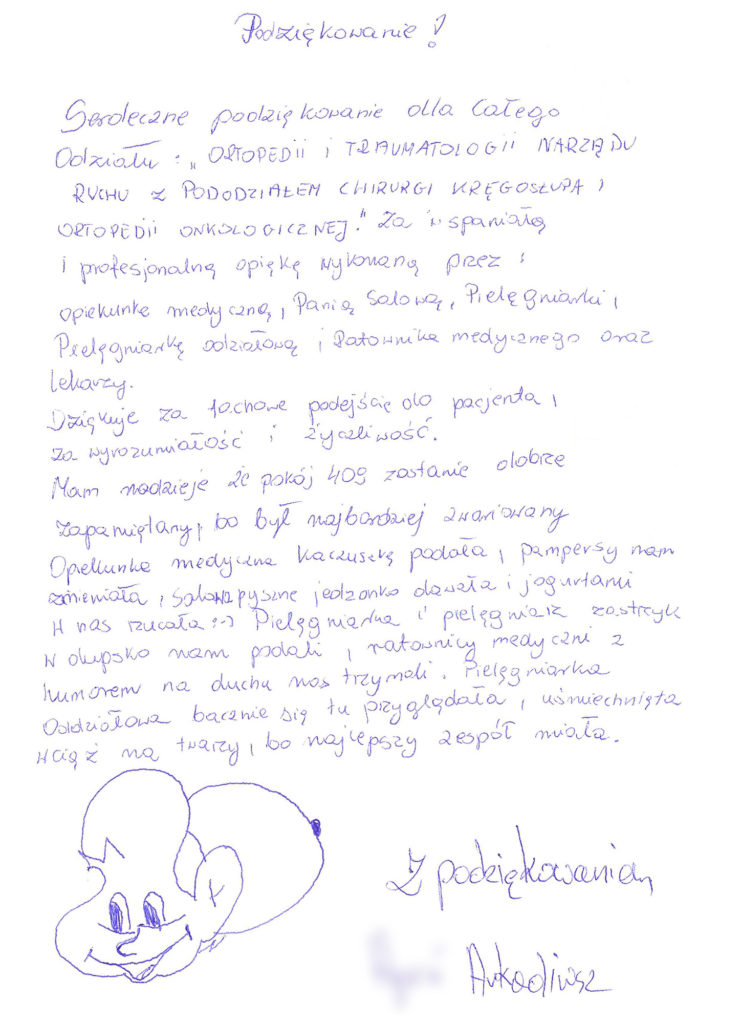 Podziękowanie!
Serdeczne podziękowanie dla Całego
Odziału: „ORTOPEDII i TRAUMATOLOGII NARZĄDU
RUCHU Z PODODZIAŁEM CHIRURGI KRĘGOSŁUPA I
ORTOPEDII ONKOLOGICZNEJ." Za wspaniałą
i profesjonalną opiękę wykonaną prez:
opiekunke medyczną, Panią Salową, Pielęgniarki,
Pielęgniarkę odziałową i Ratownika medycznego oraz
lekarzy.
Dziękuje za fachowe podejście do pacjenta,
za wyrozumiałość i życzliwość.
Mam nadzieje że pokój 409 zostanie dobrze
zapamiętany, bo był najbardziej zwariowany
Opiekunka medyczna kaczuszkę podała, pampersy nam
zmieniała, salowa pyszne jedzonko dawała i jogurtami
w nas rzucała :-) Pielęgniarka i pielęgniarz zastrzyk
w dupsko nam podali, ratownicy medyczni z
humorem na duchu nas trzymali. Pielęgniarka
Oddziałowa bacznie się tu przyglądała, uśmiechnięta
wciąż na twarzy, bo najlepszy zespół miała.
Z podziękowaniem
Arkadiusz